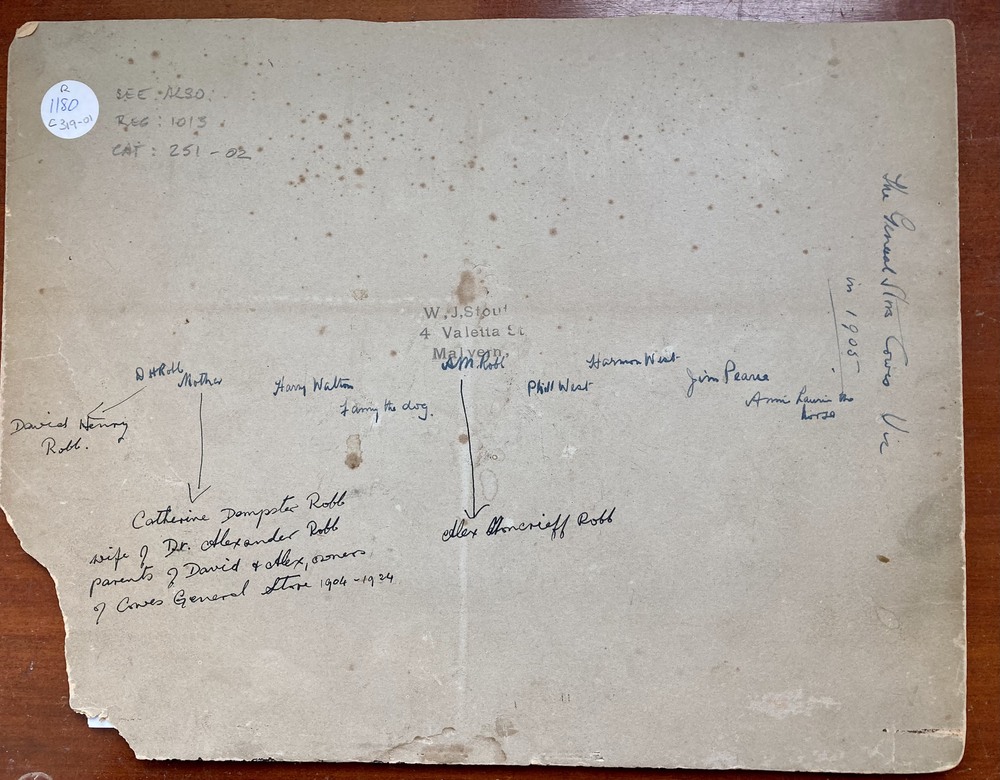 R
1180
C319-01
SEE ALSO:
REG: 1013
CAT: 251-02
The General Store Cowes Vic
in 1905
W.J.Stout
4 Valetta St
Malvern.
D H Robb
Mother
Harry Walton
Fanny the dog.
A.M. Robb
Phill West
Harmon West
Jim Pearse
Annie Laurie the
horse
David Henry
Robb.
Catherine Dempster Robb
wife of Dr. Alexander Robb
parents of David & Alex, owners
of Cowes General Store 1904-1924
Alex Moncrieff Robb